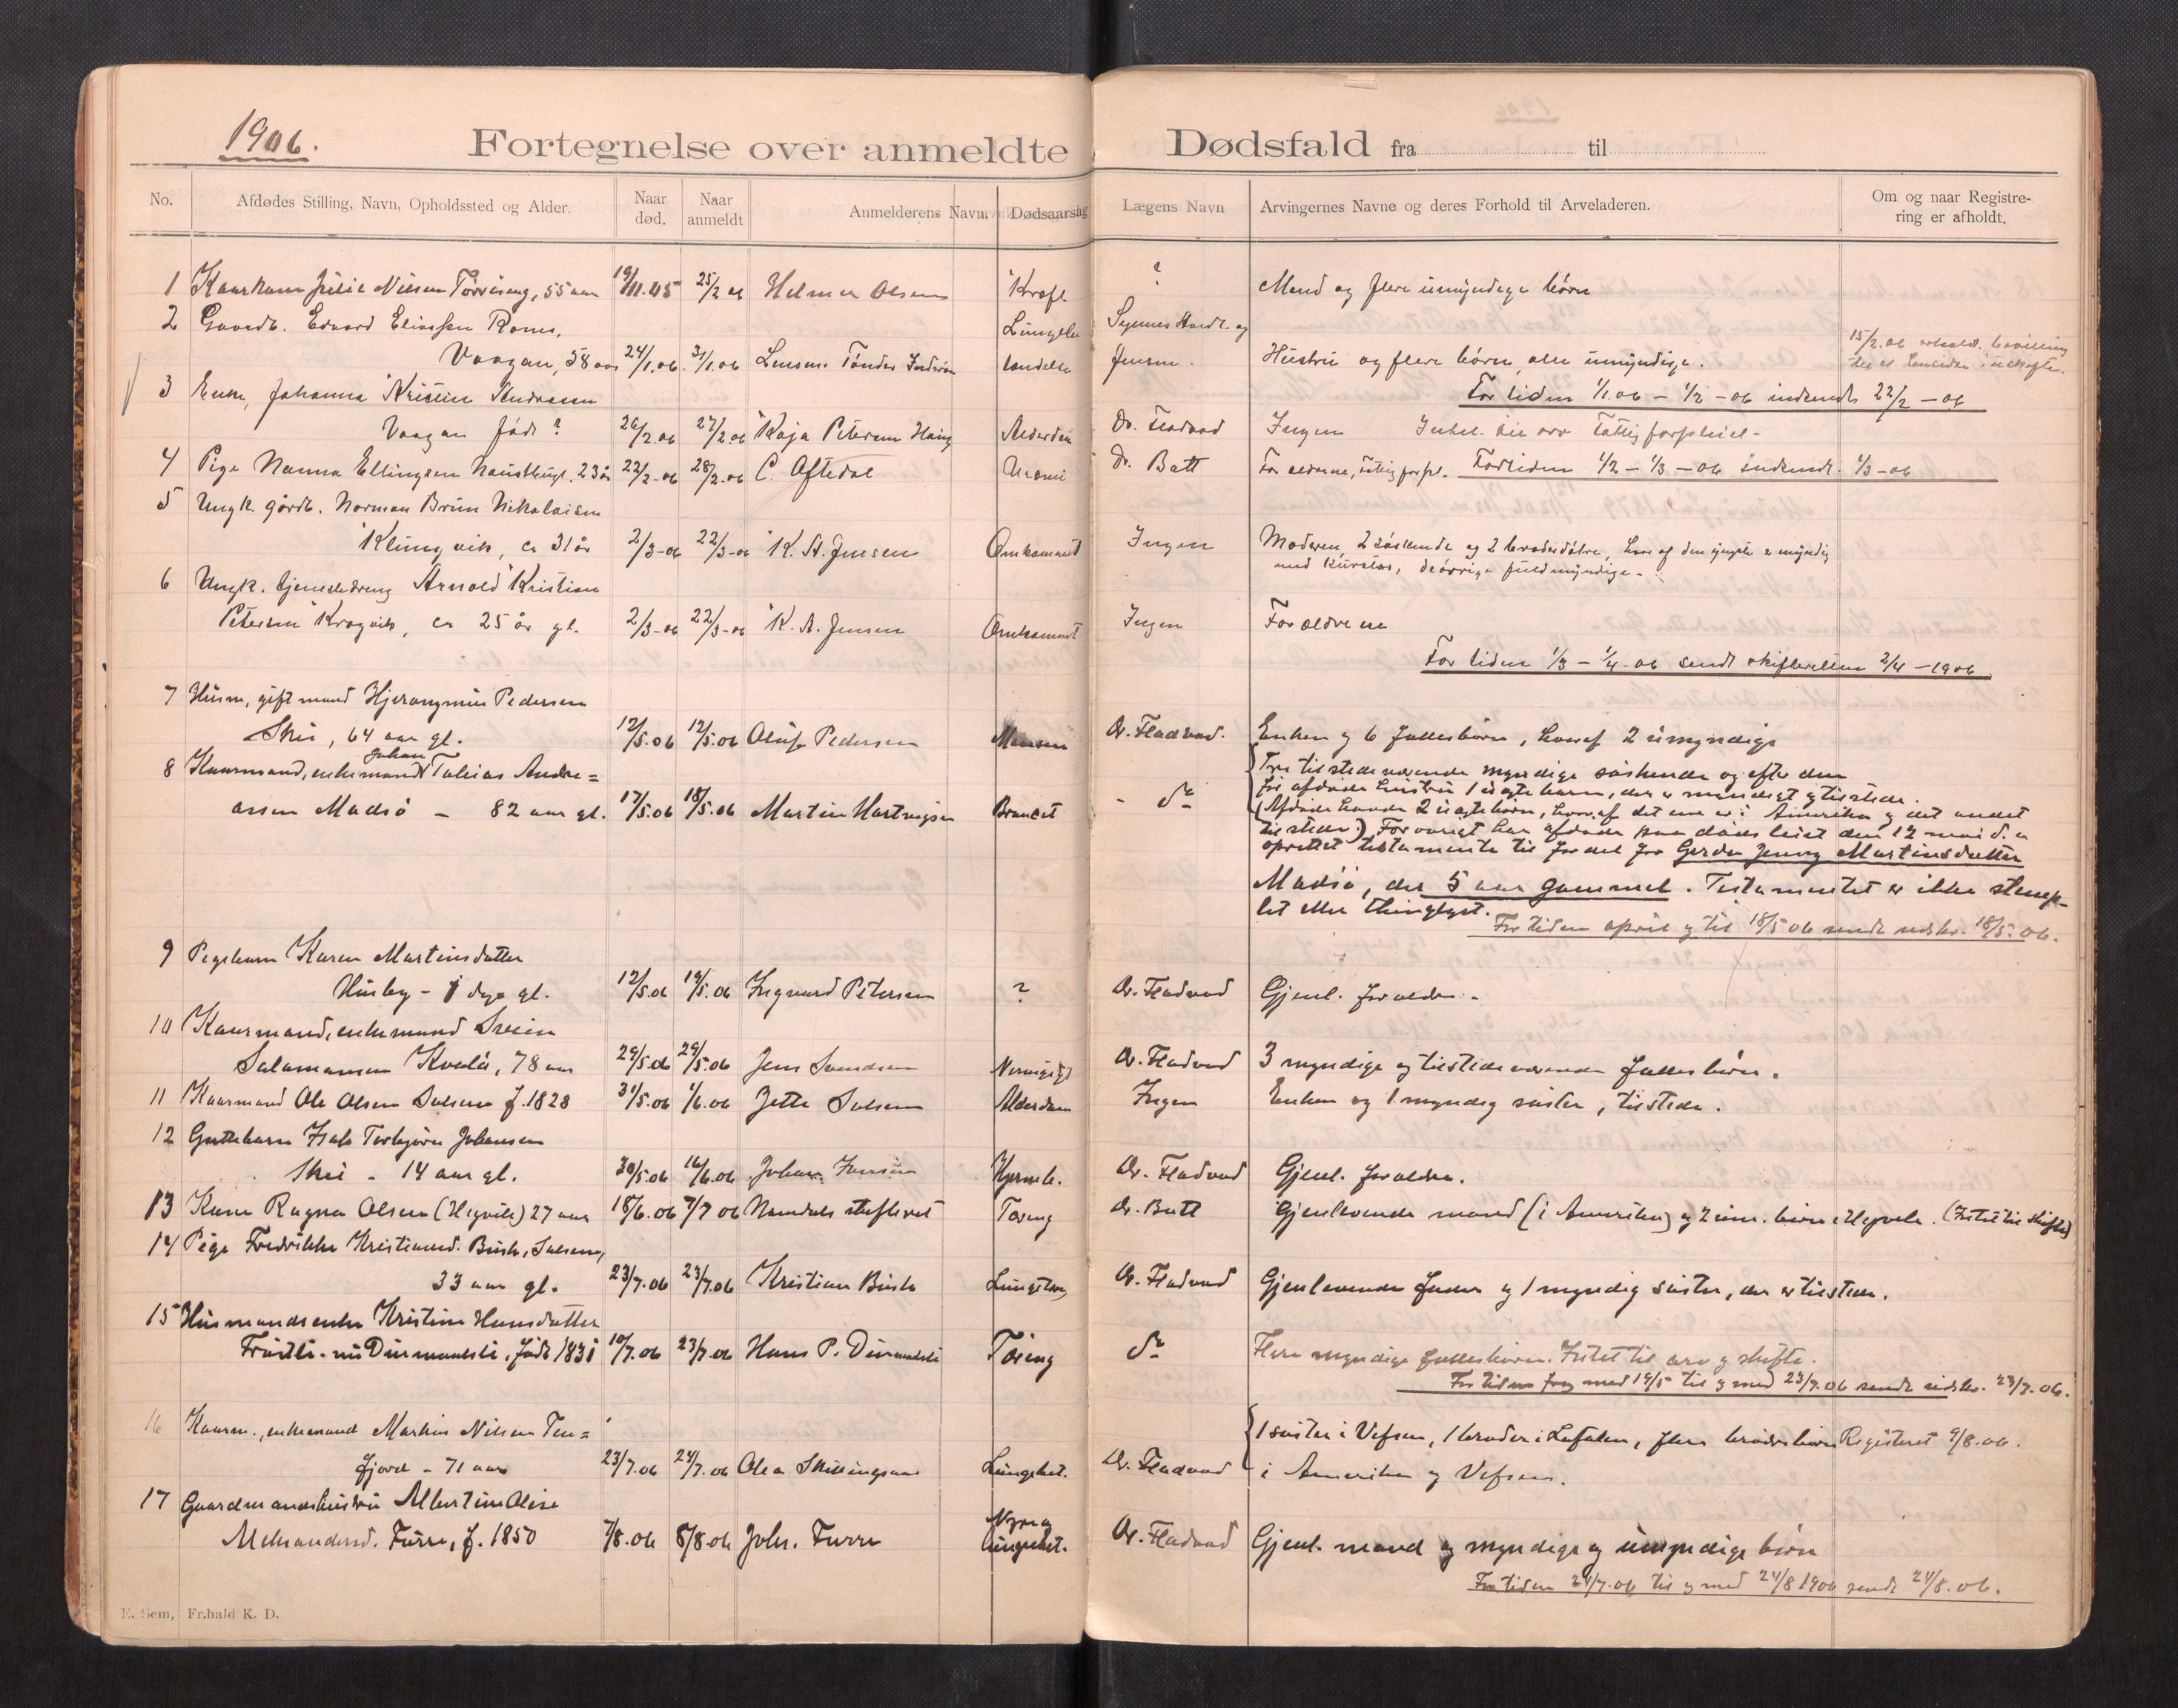 1906.
Fortegnelse over anmeldte Dødsfald fra til
No. Afdødes Stilling, Navn, Opholdssted og Alder. Naar død. Naar anmeldt Anmelderens Navn. Dødsaarsag Lægens Navn Arvingernes Navne og deres Forhold til Arveladeren. Om og naar Registrering er afholdt.
1 Julie Nilsen 55 aar 25/2 06 Helmer Olsen Kræft ? Mand og flere umyndige børn
2 Gaardb. Edvard Eliassen
Vaagan, 58 aar 24/1.06. 31/1.06 Lensm. Tønder Jensen. Hustru og flere børn, alle umyndige. 15/2.06
For tiden 1/1.06 – 1/2 – 06 indsendt 22/2 – 06
3 Enke, Johanna Kristine
Vaagan født? 26/2.06 27/2.06 Kaja Petersen Dr. Fladvad Ingen Fattigforpleiet –
4 Pige Nanna Ellingsen 23 år 22/2-06 28/2.06 C. Oftedal Dr. Batt Forældrene, For tiden 1/2 – 1/3 – 06 indsendt. 1/3-06
5 Ungk. gårdb. Norman Brun Nikolaisen
Klungvik, ca 31 år 2/3-06 22/3-06 K. A. Jensen Omkommet Ingen Moderen, 2 søskende og 2 broderdøtre, hvoraf den yngste er myndig
med kurator, de øvrige fuldmyndige.
6 Ungk. tjenestedreng Arnold Kristian
Petersen Kragvik, ca 25 år gl. 2/3-06 22/3-06 K. A. Jensen Omkommet Ingen Forældrene
For tiden 1/3 – 1/4-06 sendt skifteretten 2/4 – 1906
7 Husm, gift mand Hjeronymus Pedersen
Skei, 64 aar gl. 12/5.06 12/5.06 Oluf Pedersen Dr. Fladvad. Enken og 6 fællesbørn, hvoraf 2 umyndige
8 Kaarmand, enkemand Johan Tobias Andre=
assen Madsø – 82 aar gl. 17/5.06 18/5.06 Martin Hartvigsen Dr. Tre tilstedeværende myndige søskende og efter den
før afdøde hustru 1 uægte barn, der er myndigt og tilstede.
(Afdøde havde 2 uægte børn, hvoraf det ene er i Amerika og det andet
tilstede.) Forøvrigt har afdøde paa dødsleiet den 12 mai d. a.
oprettet testamente til fordel for Gerda Jenny Martinsdatter
Madsø, der 5 aar gammel. Testamentet er ikke stemp-
let eller thinglyst.
For tiden april og til 18/5 06 sendt udskr. 18/5.06.
9 Pigebarn Karen Martinsdatter
Husby – 1 dage gl. 12/5.06 19/5.06 Ingvard Petersen ? Dr. Fladvad Gjenl. forældre.
10 Kaarmand, enkemand Svein
Salamonsen Kvalø, 78 aar 29/5.06 29/5.06 Jens Svendsen Dr. Fladvad 3 myndige og tilstedeværende fællesbørn.
11 Kaarmand Ole Olsen Salsen f. 1828 31/5.06 1/6.06 Jette Salsen Alderdom Ingen Enken og 1 myndig søster, tilstede.
12 Guttebarn Isak Torbjørn Johansen
Skei – 14 aar gl. 30/5.06 16/6.06 Johan Dr. Fladvad Gjenl. forældre.
13 Kone Ragna Olsen (Hegvik) 27 aar 18/6.06 7/7 06 Namdals skifteret Tæring Dr. Batt Gjenlevende mand (i Amerika) og 2 um. børn i Hegvik. (Intet til skifte)
14 Pige Fredrikke Kristiansd. Busk, Salsen,
33 aar gl. 23/7.06 23/7.06 Kristian Busk Dr. Fladvad Gjenlevende fader og 1 myndig søster, der er tilstede.
15 Husmandsenke Kristine Hansdatter
nu Durmaalsli, født 1831 10/7.06 23/7.06 Hans P. Durmaalsli Tæring Dr. Flere myndige fællesbørn. Intet til arv og skifte.
For tiden fra og med 19/5 til og med 23/7.06 sendt udskr. 23/7.06.
16 Kaarm., enkemand Markus Nilsen Ten=
fjord – 71 aar 23/7.06 24/7.06 Olea Skillingsaas Lungebet. Dr. Fladvad 1 søster i Vefsen, 1 broder i Lofoten, flere broderbørn Registreret 9/8.06.
i Amerika og Vefsen.
17 Gaardmandshustru Albertine Olise
Aleksandersd. Furre, f. 1850 7/8.06 8/8.06 Johs. Furre Nyre og lungebet. Dr. Fladvad Gjenl. mand og myndige og umyndige børn
For tiden 24/7.06 til og med 24/8 1906 sendt 24/8.06.
E. Sem, Fr.hald K. D.